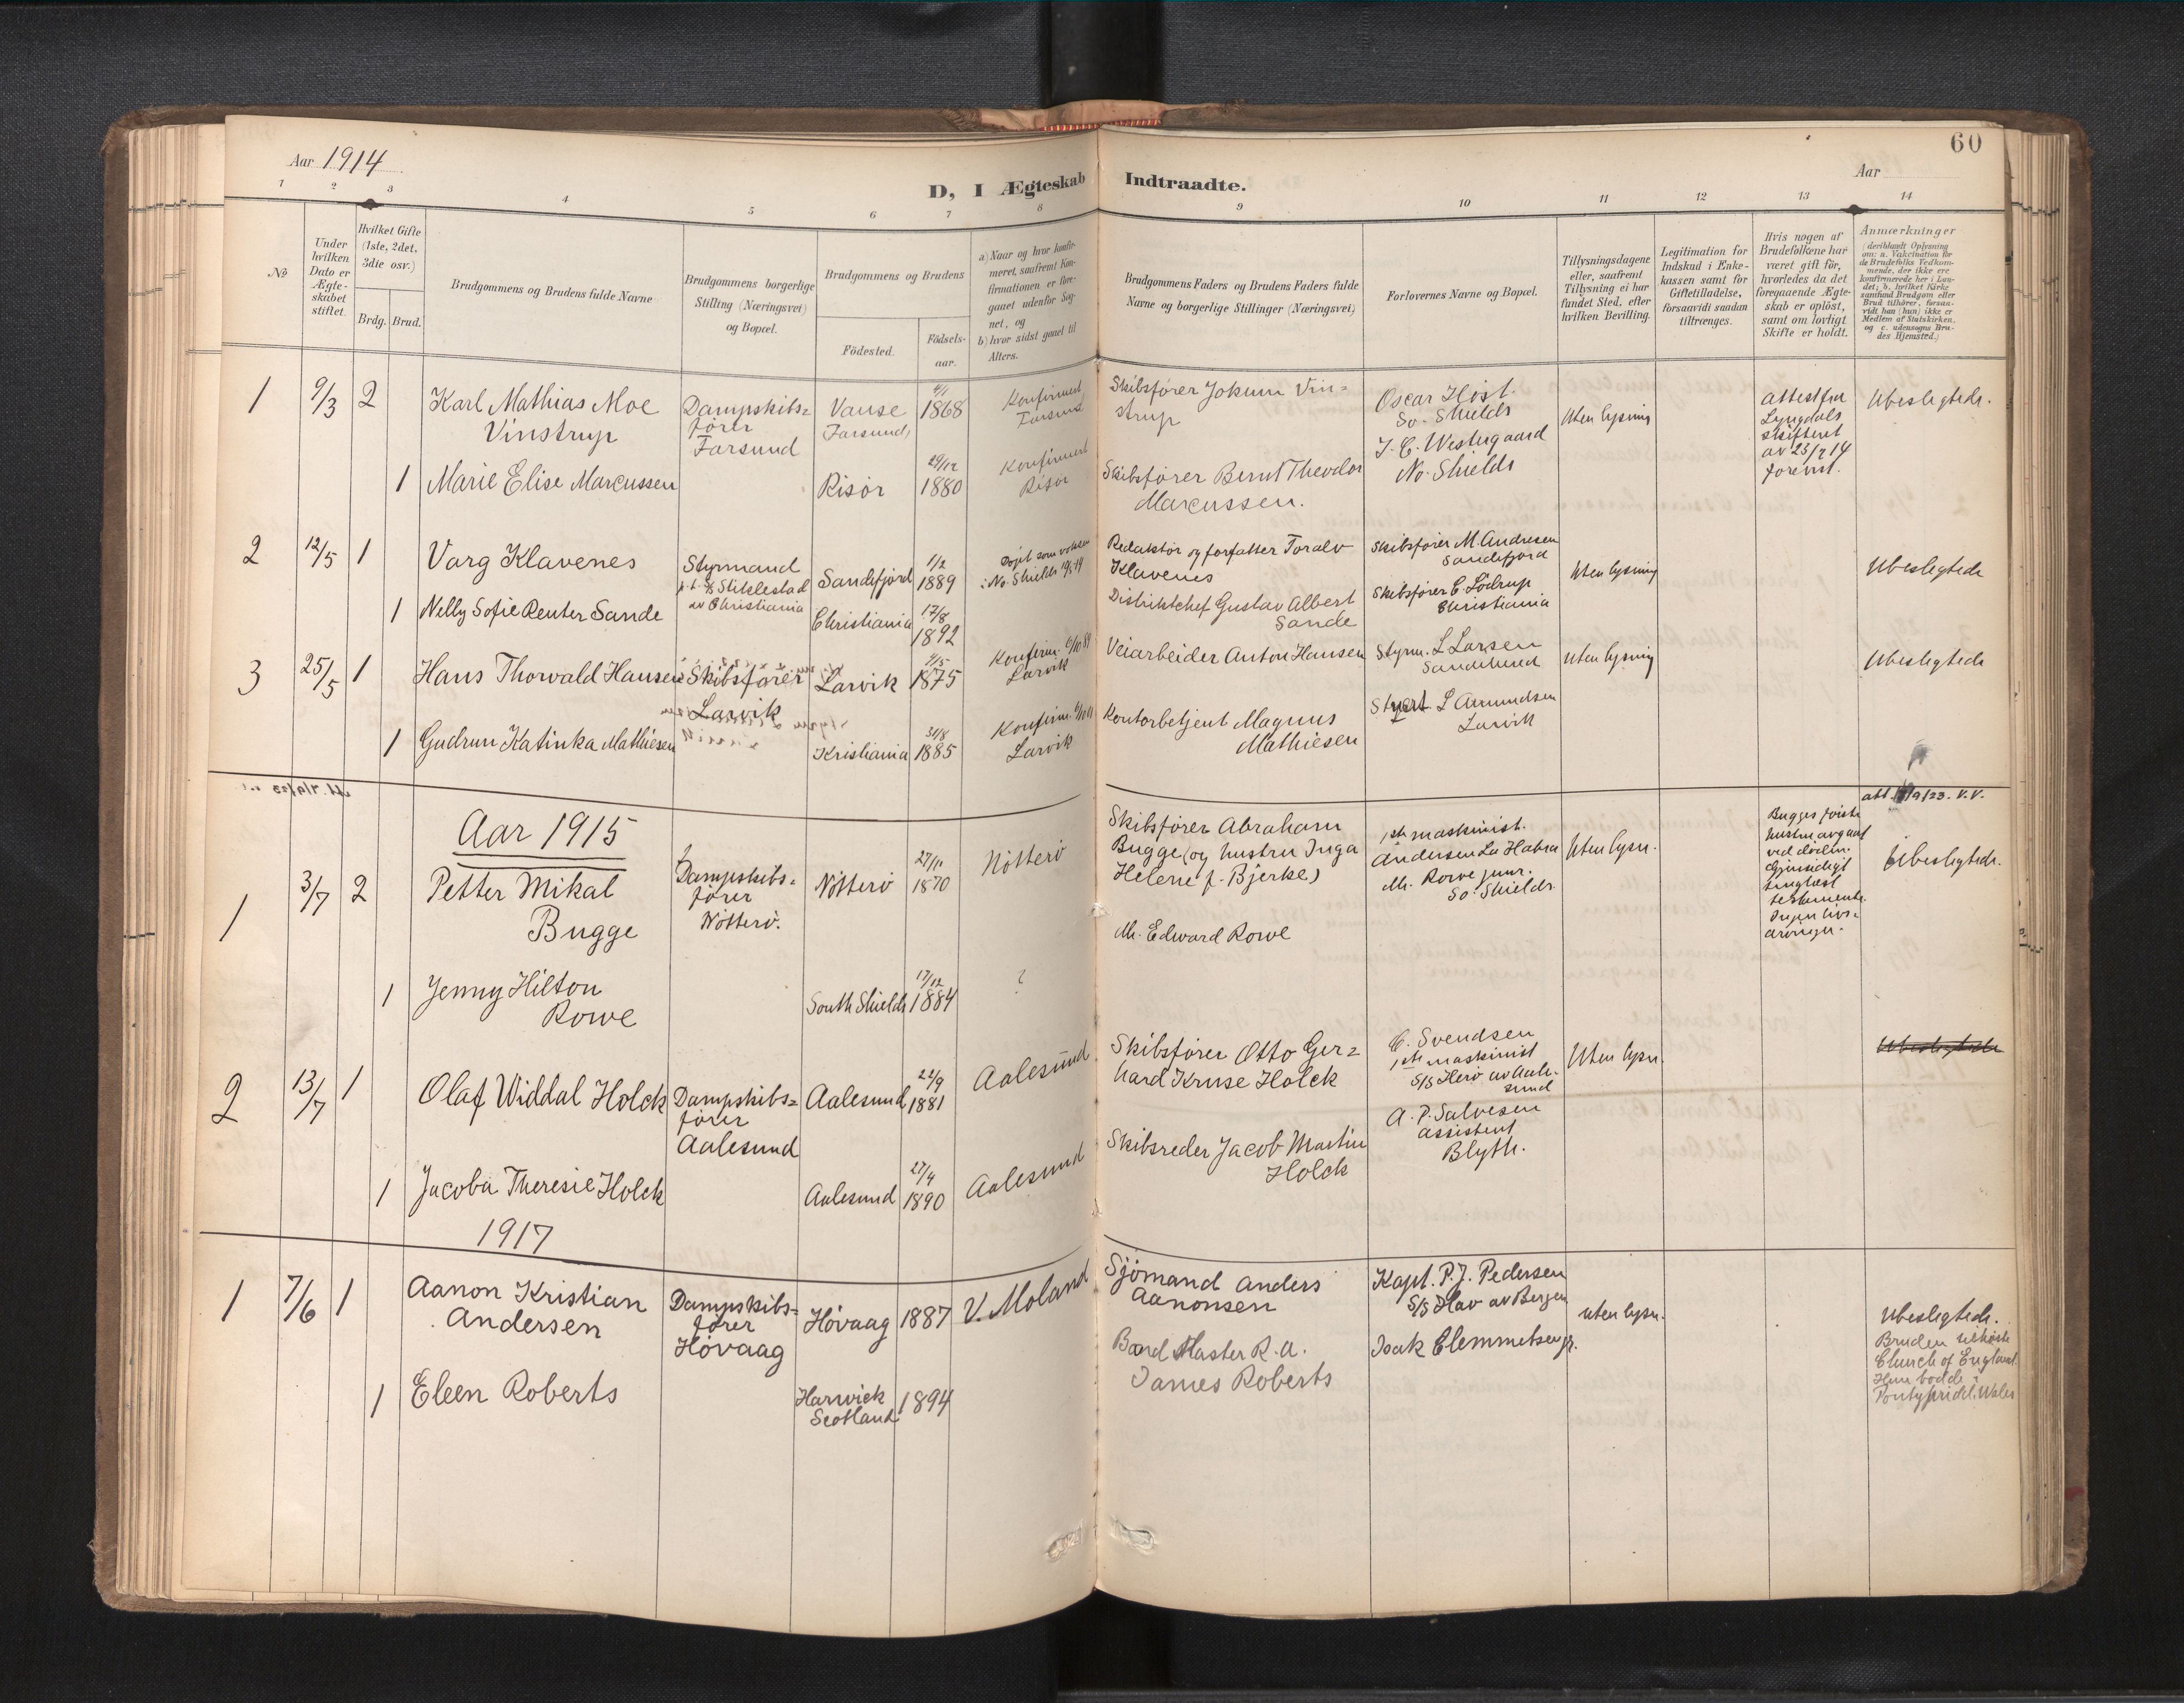 60
Aar 1914
Aar
D, I Ægteskab Indtraadte.
1 2 3 4 5 6 7 8 9 10 11 12 13 14
No
Under hvilken Dato er Ægteskabet stiftet.
Hvilket Gifte (1ste, 2det, 3die osv.)
Brdg. Brud.
Brudgommens og Brudens fulde Navne
Brudgommens borgerlige
Stilling (Næringsvei)
og Bopæl.
Brudgommens og Brudens
Födested.
Födselsaar.
a) Naar og hvor konfir-
meret, saafremt Kon-
firmationen er fore-
gaaet udenfor Sog-
net, og
b) hvor sidst gaaet til
Alters.
Brudgommens Faders og Brudens Faders fulde
Navne og borgerlige Stillinger (Næringsvei)
Forlovernes Navne og Bopæl.
Tillysningsdagene
eller, saafremt
Tillysning ei har
fundet Sted, efter
hvilken Bevilling.
Legitimation for
Indskud i Enke-
kassen samt for
Giftetilladelse,
forsaavidt saadan
tiltrænges.
Hvis nogen af
Brudefolkene har
været gift för,
hvorledes da det
foregaaende Ægte-
skab er oplöst,
samt om lovligt
Skifte er holdt.
Anmærkninger
(deriblandt Oplysning
om: a. Vakcination for
de Brudefolks Vedkom-
mende, der ikke ere
konfirmerede her i Lan-
det; b. hvilket Kirke-
samfund Brudgom eller
Brud tilhører, forsaa-
vidt han (hun) ikke er
Medlem af Statskirken,
og c. udensogns Bru-
des Hjemsted.)
1 9/3 2 Karl Mathias Moe
Vinstrup
Dampskibs=
fører
Farsund
Vanse
Farsund)
4/1
1868
Konfirmert
Farsund
Skibsfører Jokum Vin=
strup
Oscar Høst.
So. Shields
J. C. Westergaard
No. Shields
Uten lysning
attest fra
Lyngdals
skifteret
av 23/2 14
forevist.
Ubeslegtede.
1 Marie Elise Marcussen
Risør
29/12
1880
Konfirmert
Risør
Skibsfører Bernt Theodor
Marcussen.
2 12/5 1 Varg Klavenes
Styrmand
p.t. S/S Stiklestad
av Christiania
Sandefjord
1/2
1889
Døpt som voksen
i No. Shields
Redaktør og forfatter Toralv
Klavenes
Skibsfører M Andresen
Sandefjord
Skibsfører C. Lödrup
Christiania
Uten lysning
Ubeslegtede
1 Nelly Sofie Reuter Sande
Christiania
17/8
1892
Distriktchef Gustav Albert
Sande
3 25/5 1 Hans Thorvald Hansen
Skibsfører
Larvik
Larvik
4/5
1875
Konfirm.
Larvik
Veiarbeider Anton Hansen
Styrm. L Larsen
Sandesund
Uten lysning
Ubeslegtede
1 Gudrun Katinka Mathiesen
Kristiania
31/8
1885
Konfirm.
Larvik
Kontorbetjent Magnus
Mathiesen
L Amundsen
Larvik
Aar 1915
att. 9/23. V.V.
1 3/7 2 Petter Mikal
Bugge
Dampskibs=
fører
Nötterö.
Nötterö
27/11
1870
Nötterö
Skibsfører Abraham
Bugge (og hustru Inga
Helene f. Bjerke)
1ste maskinist.
Andersen La Habra
Mr. Rowe junr.
So. Shields
Uten lysn.
Bugges første
hustru avgaat
ved døden.
Gjensidigt
tinglæst
testamente.
Ingen livs=
arvinger.
Ubeslegtede.
1 Jenny Hilton
Rowe
South Shields
17/12
1884
?
Mr. Edward Rowe
2 13/7 1 Olaf Widdal Holck
Dampskibs=
fører
Aalesund
Aalesund
22/9
1881
Aalesund
Skibsfører Otto Ger=
hard Kruse Holck
C. Svendsen
1ste maskinist
S/S Herø av Aale-
sund
A. P. Salvesen
assistent
Blyth.
Uten lysn.
Ubeslegtede
1 Jacoba Theresie Holck
Aalesund
27/4
1890
Aalesund
Skibsreder Jacob Martin
Holck
1917
1 7/6 1 Aanon Kristian
Andersen
Dampskibs=
fører
Høvaag
Høvaag
1887
V. Moland
Sjømand Anders
Aanonsen
Kapt. P. J. Pedersen
S/S Hav av Bergen
Isak Clemmetsen jr.
uten lysn.
Ubeslegtede.
Bruden tilhørte
Church of England.
Hun bodde i
Pontypridd. Wales
1 Eleen Roberts
Harwick
Scotland
1894
Band Master R. A.
James Roberts